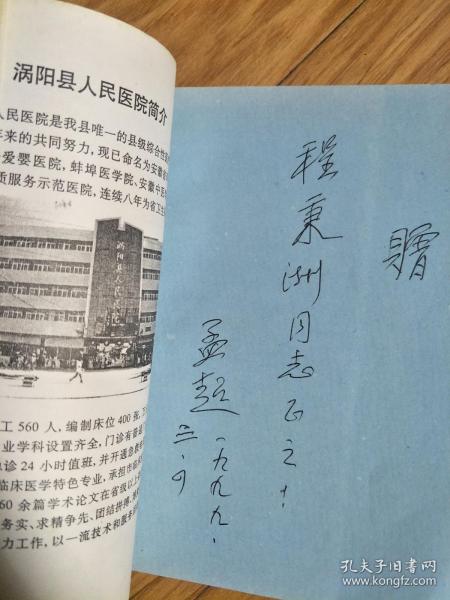 涡阳县人民医院简介
人民医院是我县唯一的县级综合性
年来的共同努力，现已命名为安徽省
爱婴医院，蚌埠医学院、安徽中医
质服务示范医院，连续八年为省卫生
涡阳县人民医院
工 560 人，编制床位 400 张，
业学科设置齐全，门诊有普通
急诊 24 小时值班，并开通急救
临床医学特色专业，承担市
60 余篇学术论文在省级以上
务实、求精争先、团结拼搏、
力工作，以一流技术和服务
赠
程秉洲同志正之！
孟超 一九九九.
三.9
孔夫子旧书网
www.kongfz.com